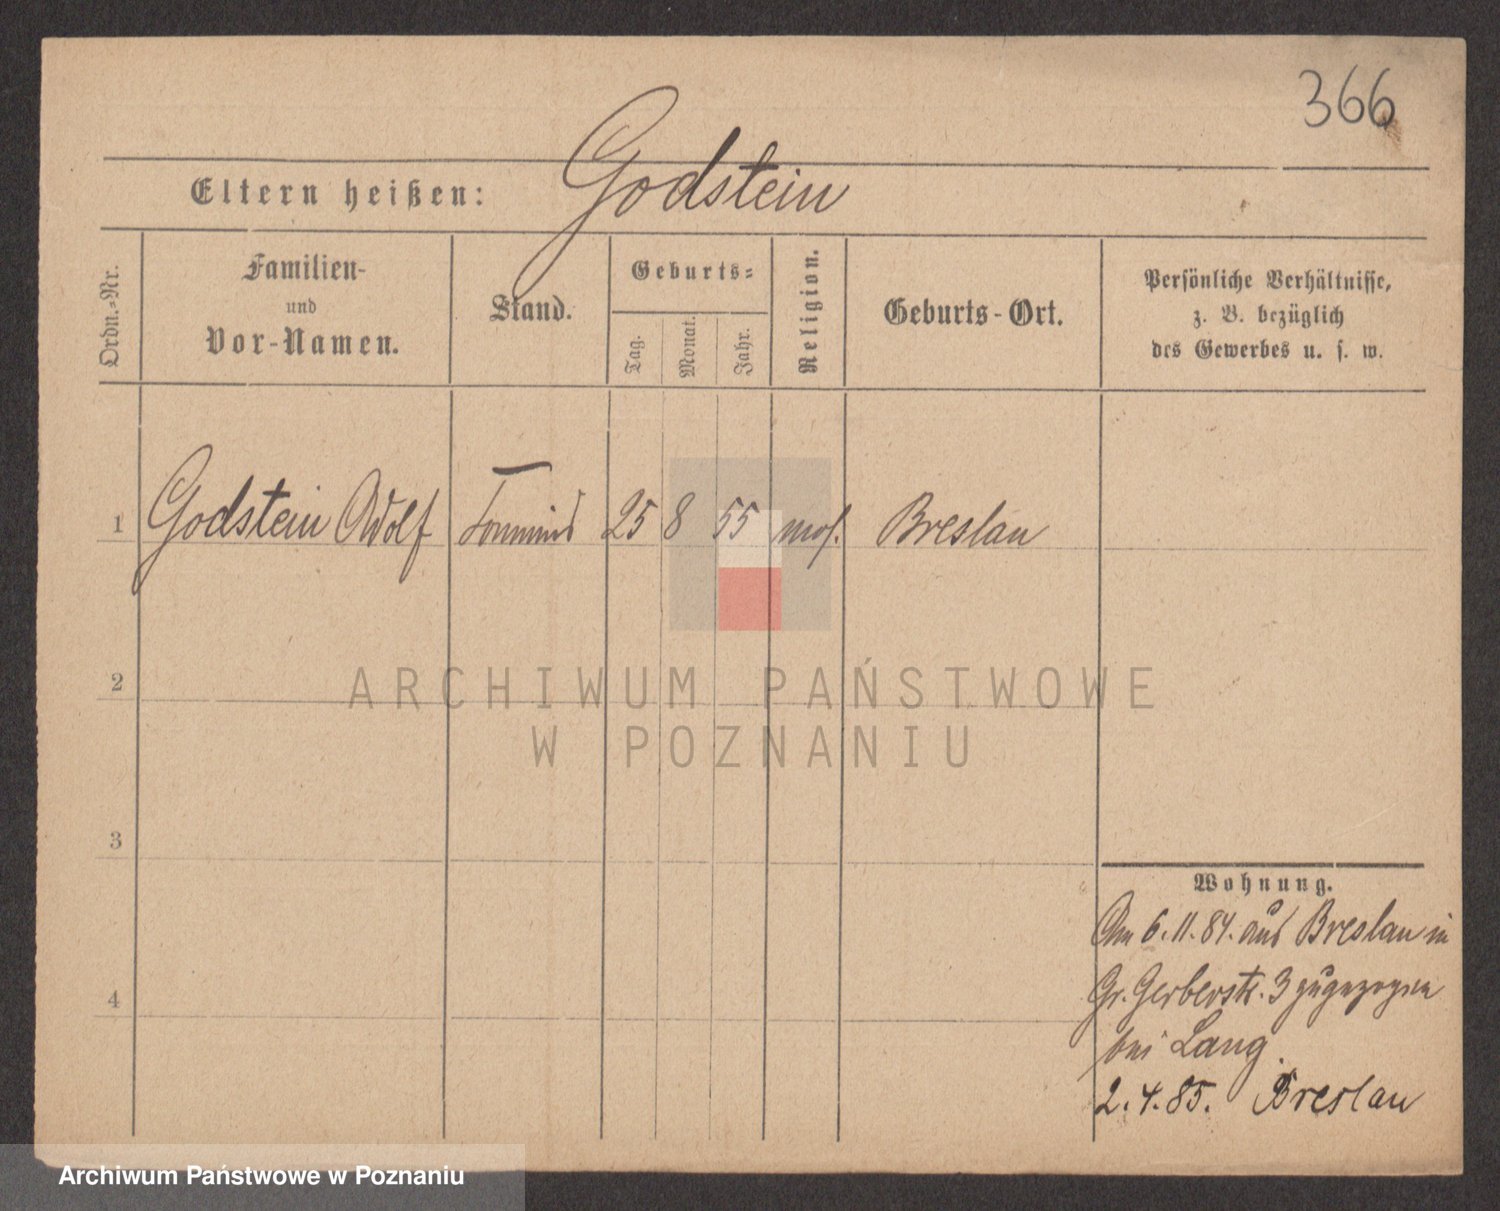 366
Eltern heißen: Godstein
Ordn.-Nr.
Familien-
und
Vor-Namen.
Stand.
Geburts-
Tag.
Monat.
Jahr.
Religion.
Geburts-Ort.
Persönliche Verhältnisse,
z. B. bezüglich
des Gewerbes u. s. w.
1 Godstein Adolf 25 8 55 mos. Breslau
2
3
4
Wohnung.
Am 6.11.84. aus Breslau in
Gr. Gerberstr. 3 zugezogen
bei Lang.
2.4.85. Breslau
ARCHIWUM PAŃSTWOWE
W POZNANIU
Archiwum Państwowe w Poznaniu